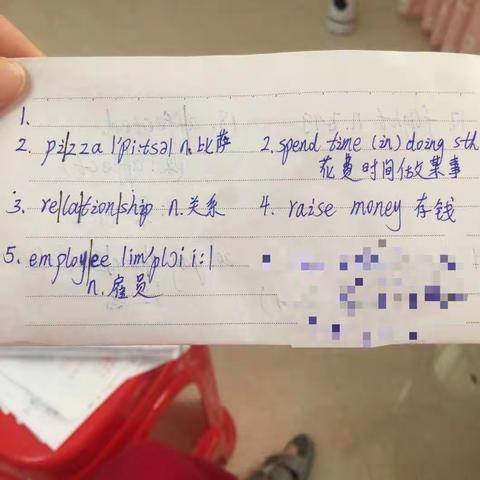 1.
2. pi|zza |'pi:tsə| n. 比萨
2. spend time (in) doing sth
花费时间做某事
3. re|la|tion|ship n. 关系
4. raise money 存钱
5. employ|ee |im'plɔi i:|
n. 雇员